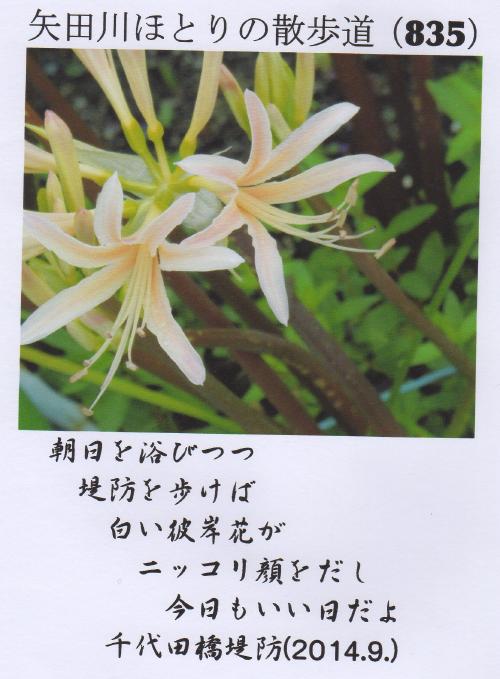 矢田川ほとりの散歩道（835）
朝日を浴びつつ
堤防を歩けば
白い彼岸花が
ニッコリ顔をだし
今日もいい日だよ
千代田橋堤防(2014.9.)